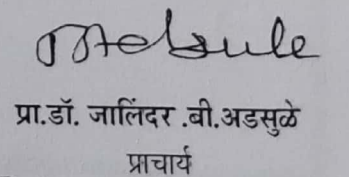 प्रा.डॉ. जालिंदर .बी.अडसुळे
प्राचार्य